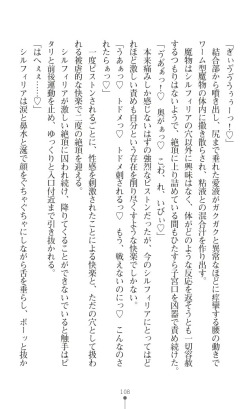 「ぎぃいゔゔうぅーっ！」
結合部から噴き出し、尻まで垂れた愛液がガクガクと異常なほどに痙攣する腰の動きで
ワーム型魔物の体内に撒き散らされ、粘液との混合汁を作り出す。
魔物はシルフィリアの穴以外に興味はなく、体がどのような反応を返そうとも一切容赦
するつもりはないようで、絶頂に上り詰めている間もひたすら子宮口を凶器で責め続けた。
「うああぁっ♡　奥がぁっ♡　こわ、れ、いびぃ♡」
本来痛みしか感じないはずの強烈なピストンだったが、今のシルフィリアにとってはど
れほど激しい責めも自分という存在を削り尽くすような快楽でしかない。
「うあぁっ♡　トドメっ♡　トドメ刺されるっ♡　もう、戦えないのにっ♡　こんなのさ
れたらぁっ♡」
一度ピストンされるごとに、性感を刺激されたことによる快楽と、ただの穴として扱わ
れる被虐的な快楽で二度の絶頂を迎える。
シルフィリアが激しい絶頂に囚われ続け、降りてくることができないでいると触手はピ
タリと前後運動を止め、ゆっくりと入口付近まで引き抜かれる。
「はへぇぇ……♡」
シルフィリアは涙と鼻水と涎で顔をぐちゃぐちゃにしながら舌を垂らし、ボーッと抜か
106